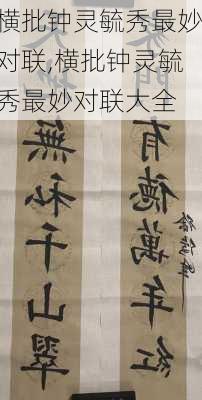 横批钟灵毓秀最妙
对联,横批钟灵毓
秀最妙对联大全
有德萬年紅
無私千山翠